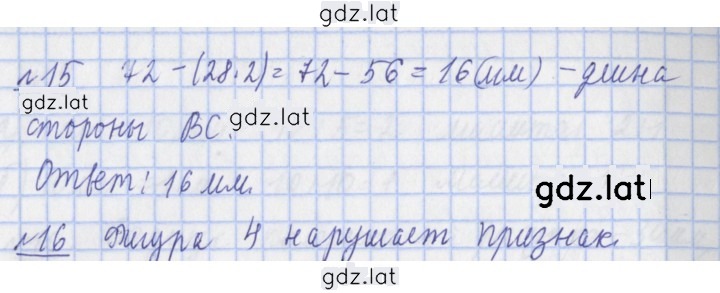 gdz.lat
№15 72-(28·2)=72-56=16(мм) - длина
gdz.lat
стороны BC. gdz.lat
Ответ: 16 мм.
gdz.lat
№16 Фигура 4 нарушает признак.
gdz.lat